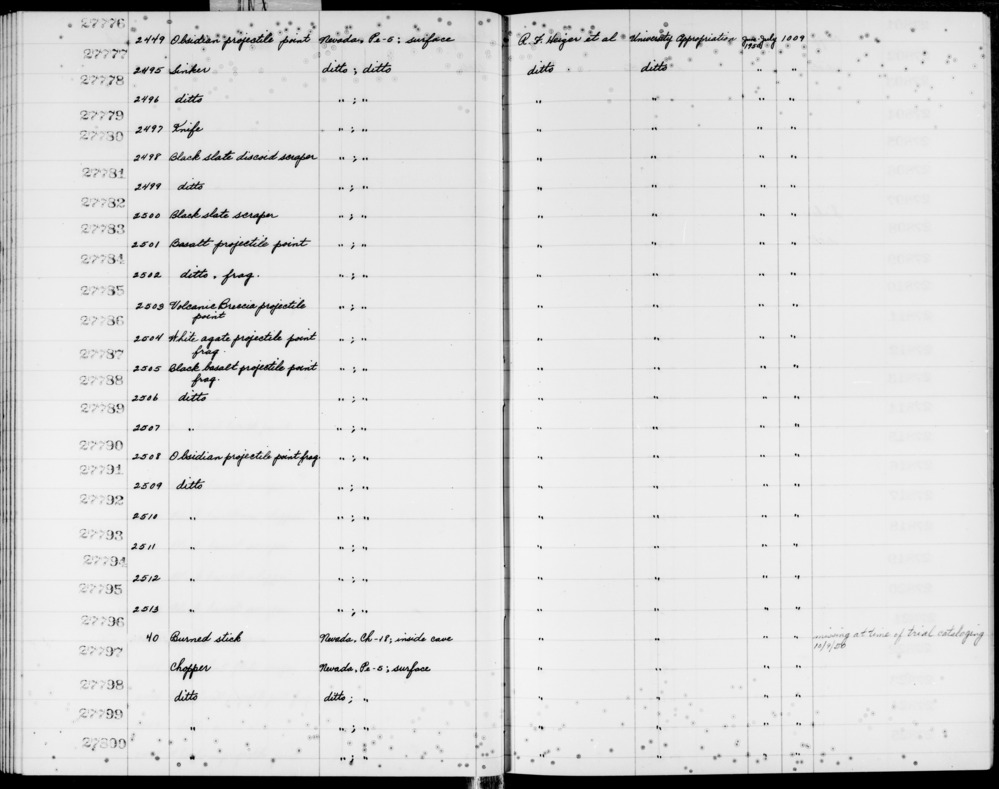 27776
2449 Obsidian projectile point Nevada, Pe-5; surface R. F. Heizer et al University Appropriation June-July 1950 1009
27777
2495 Sinker ditto ; ditto ditto ditto " "
27778
2496 ditto " ; " " " " "
27779
2497 Knife " ; " " " " "
27780
2498 Black slate discoid scraper " ; " " " " "
27781
2499 ditto " ; " " " " "
27782
2500 Black slate scraper " ; " " " " "
27783
2501 Basalt projectile point " ; " " " " "
27784
2502 ditto, frag. " ; " " " " "
27785
2503 Volcanic Breccia projectile " ; " " " " "
point
27786
2504 White agate projectile point " ; " " " " "
frag.
27787
2505 Black basalt projectile point " ; " " " " "
frag.
27788
2506 ditto " ; " " " " "
27789
2507 " " ; " " " " "
27790
2508 Obsidian projectile point frag. " ; " " " " "
27791
2509 ditto " ; " " " " "
27792
2510 " " ; " " " " "
27793
2511 " " ; " " " " "
27794
2512 " " ; " " " " "
27795
2513 " " ; " " " " "
27796
40 Burned stick Nevada, Ch-18; inside cave " " " " missing at time of trial cataloging
27797
Chopper Nevada, Pe-5; surface " " " "
27798
ditto ditto ; " " " " "
27799
" " ; " " " " "
27800
" " ; " " " " "